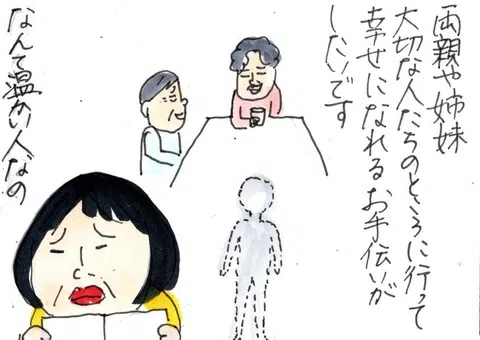 両親や姉妹
大切な人たちのところに行って
幸せになれるお手伝いが
したいです
なんて温かい人なの